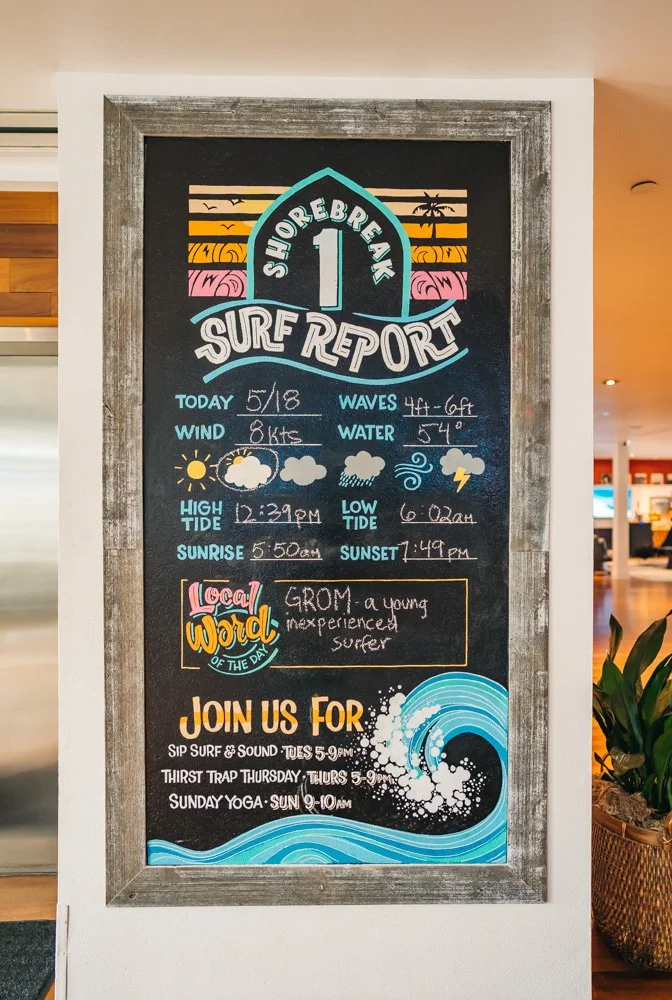 SHOREBREAK
1
SURF REPORT
TODAY 5/18 WAVES 4ft-6ft
WIND 8kts WATER 54°
HIGH TIDE 12:39pm LOW TIDE 6:02am
SUNRISE 5:50am SUNSET 7:49pm
Local Word OF THE DAY
GROM - a young
inexperienced
surfer
JOIN US FOR
SIP SURF & SOUND · TUES 5-9PM
THIRST TRAP THURSDAY · THURS 5-9PM
SUNDAY YOGA · SUN 9-10AM